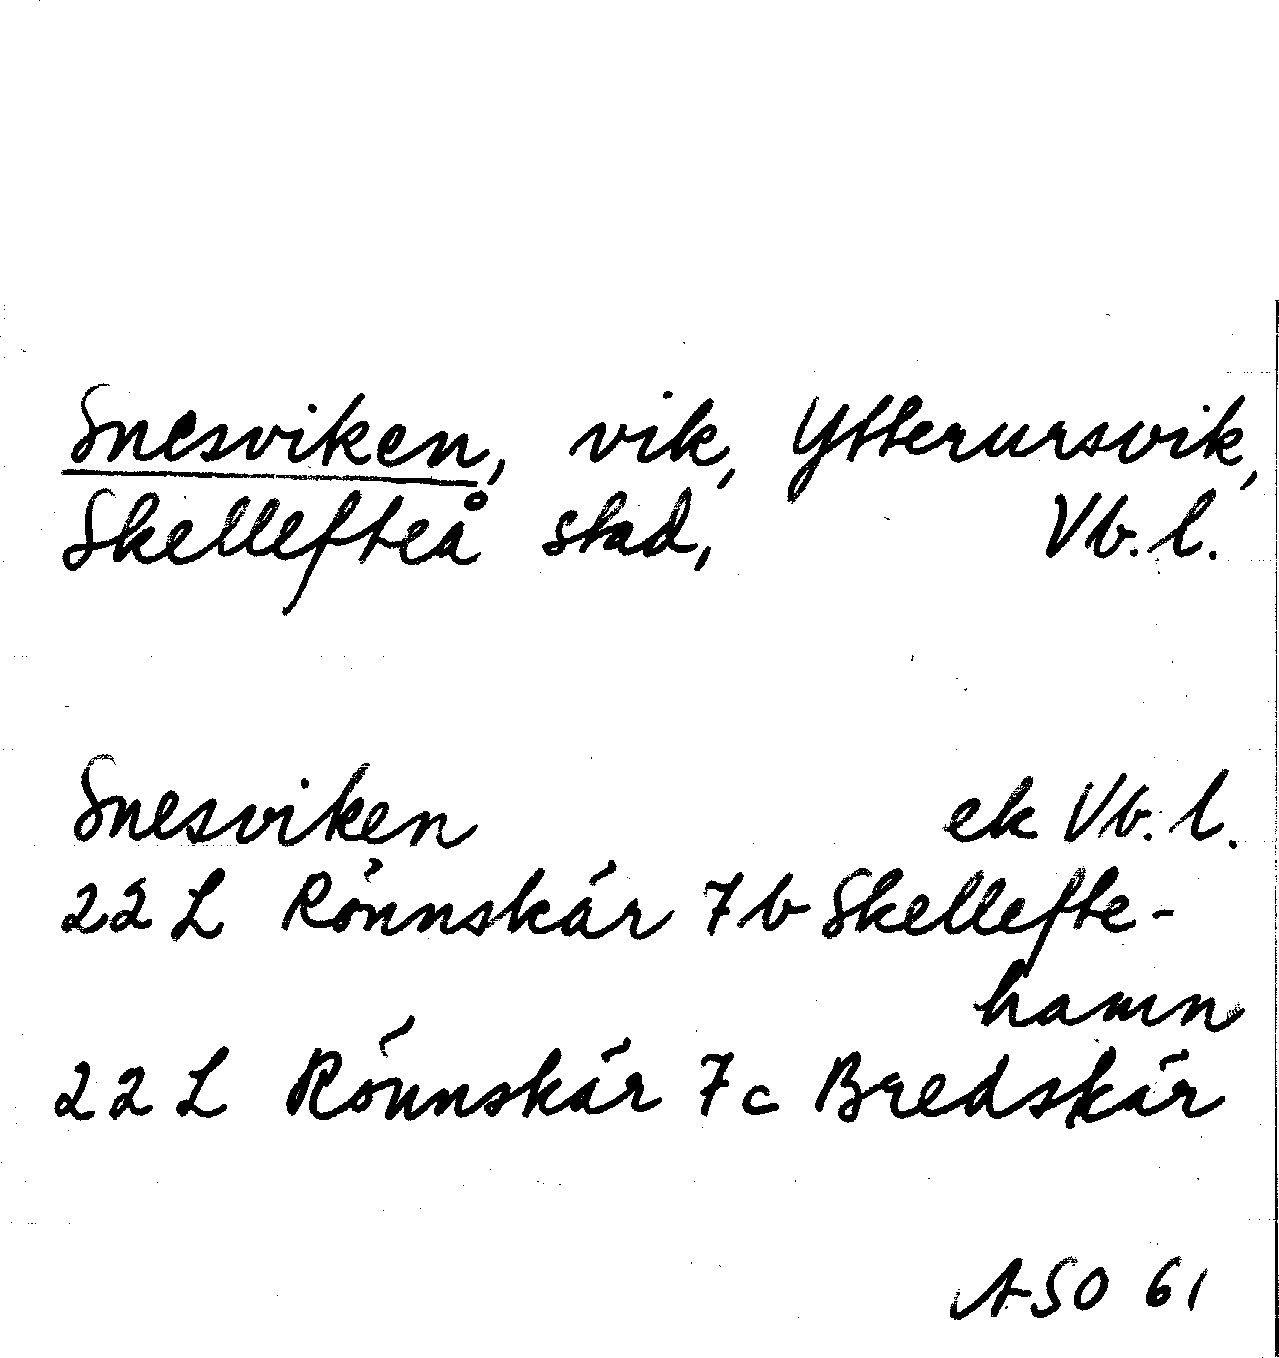 Snesviken, vik, Ytterursvik,
Skellefteå stad, Vb. l.
Snesviken ek Vb. l.
22 L Rönnskär 7 b Skellefte-
hamn
22 L Rönnskär 7 c Bredskär
ASO 61